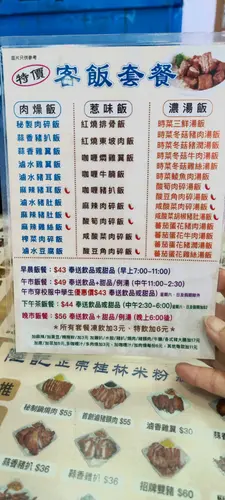 圖片只供參考
特價 客飯套餐
肉燥飯 惹味飯 濃湯飯
秘製肉碎飯 紅燒排骨飯 時菜三鮮湯飯
蒜香豬扒飯 紅燒東坡肉飯 時菜冬菇豬肉湯飯
蒜香雞翼飯 咖喱燜雞翼飯 時菜冬菇豬潤湯飯
滷水雞翼飯 咖喱牛腩飯 時菜冬菇牛肉湯飯
滷水豬耳飯 咖喱豬扒飯 時菜冬菇雞絲湯飯
麻辣豬耳飯 咖喱肉碎飯 時菜鯪魚肉湯飯
滷水豬肚飯 麻辣肉碎飯 酸筍肉碎湯飯
麻辣豬肚飯 酸筍肉碎飯 酸豆角肉碎湯飯
麻辣雞絲飯 咸酸菜肉碎飯 咸酸菜胡椒豬肚湯飯
榨菜肉碎飯 酸豆角肉碎飯 蕃茄蛋花豬肉湯飯
酸豆腐腩飯 蕃茄蛋花牛肉湯飯
蕃茄蛋花豬潤湯飯
蕃茄蛋花雞絲湯飯
早晨飯餐: $43 奉送飲品或甜品 (早上7:00~11:00)
午市飯餐: $49 奉送飲品+甜品/例湯 (中午11:00~2:30)
午市穿校服中學生優惠價$43 奉送飲品或甜品
下午茶飯餐: $44 奉送飲品或甜品 (中午2:30~6:00)
晚市飯餐: $56 奉送飲品+甜品/例湯 (晚上6:00後)
★所有套餐凍飲加3元，特飲加6元★
正宗桂林米粉
$55
滷香雞翼 $30
蒜香豬扒 $36
$36
招牌雙豬 $60